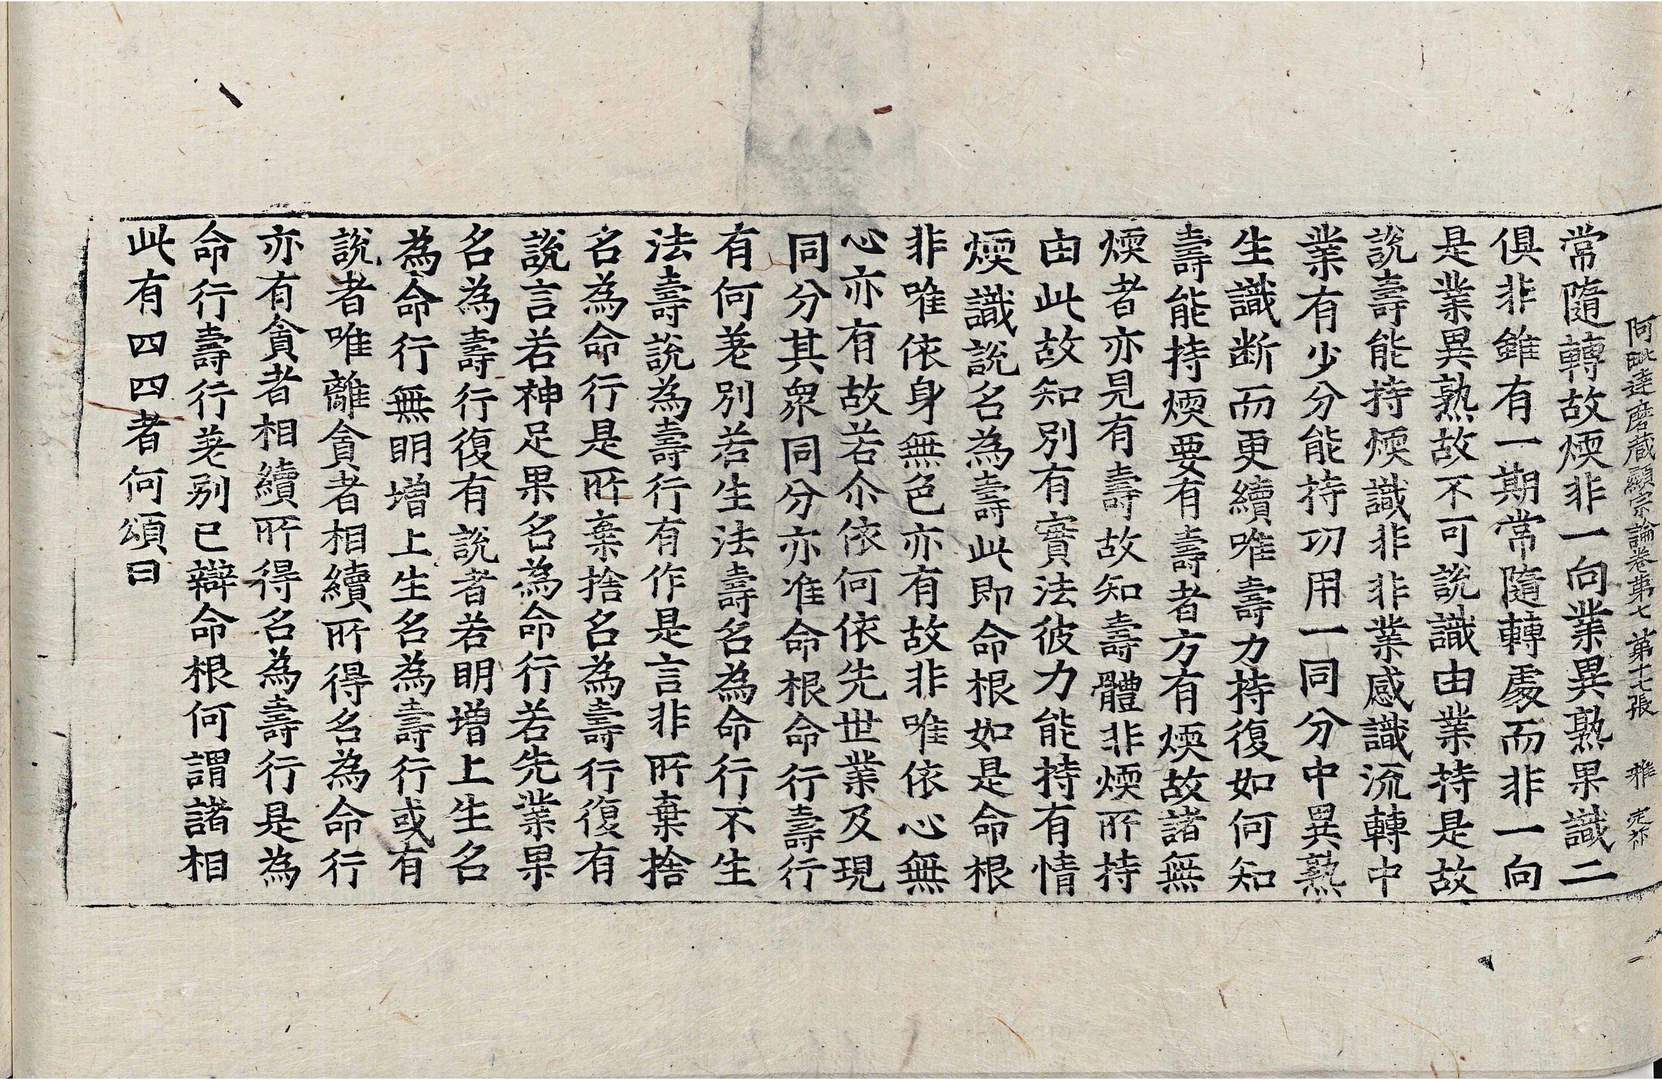 阿毗達磨藏顯宗論卷第七 第十七張 雅
常隨轉故煗非一向業異熟果識二
俱非雖有一期常隨轉處而非一向
是業異熟故不可說識由業持是故
說壽能持煗識非非業感識流轉中
業有少分能持功用一同分中異熟
生識断而更續唯壽力持復如何知
壽能持煗要有壽者方有煗故諸無
煗者亦見有壽故知壽體非煗所持
由此故知別有實法彼力能持有情
煗識說名為壽此即命根如是命根
非唯依身無色亦有故非唯依心無
心亦有故若尒依何依先世業及現
同分其眾同分亦准命根命行壽行
有何差別若生法壽名為命行不生
法壽說為壽行有作是言非所棄捨
名為命行是所棄捨名為壽行復有
說言若神足果名為命行若先業果
名為壽行復有說者若明增上生名
為命行無明增上生名為壽行或有
說者唯離貪者相續所得名為命行
亦有貪者相續所得名為壽行是為
命行壽行差别已辯命根何謂諸相
此有四四者何頌曰